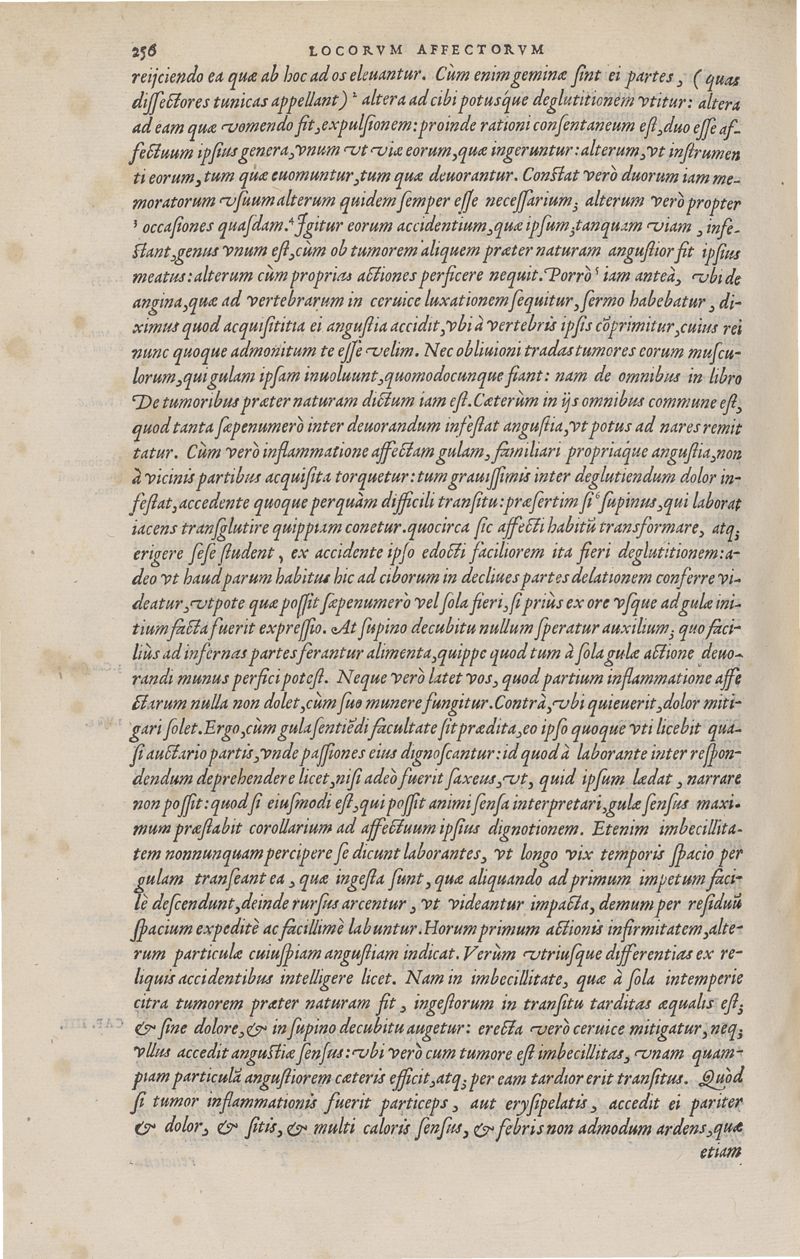 256 LOCORVM AFFECTORVM
reijciendo ea quæ ab hoc ad os eleuantur. Cùm enim geminæ ſint ei partes, (quas
diſſectores tunicas appellant) ² altera ad cibi potusq́ue deglutitionem vtitur: altera
ad eam quæ vomendo fit, expulſionem: proinde rationi conſentaneum eſt, duo eſſe af-
fectuum ipſius genera, vnum vt viæ eorum, quæ ingeruntur: alterum, vt inſtrumen
ti eorum, tum quæ euomuntur, tum quæ deuorantur. Conſtat verò duorum iam me-
moratorum vſuum alterum quidem ſemper eſſe neceſſarium; alterum verò propter
³ occaſiones quaſdam. ⁴ Igitur eorum accidentium, quæ ipſum, tanquam viam, infe-
ſtant, genus vnum eſt, cùm ob tumorem aliquem præter naturam anguſtior fit ipſius
meatus: alterum cùm proprias actiones perficere nequit. Porrò ⁵ iam anteà, vbi de
angina, quæ ad vertebrarum in ceruice luxationem ſequitur, ſermo habebatur, di-
ximus quod acquiſititia ei anguſtia accidit, vbi à vertebris ipſis cõprimitur, cuius rei
nunc quoque admonitum te eſſe velim. Nec obliuioni tradas tumores eorum muſcu-
lorum, qui gulam ipſam inuoluunt, quomodocunque fiant: nam de omnibus in libro
De tumoribus præter naturam dictum iam eſt. Cæterùm in ijs omnibus commune eſt,
quod tanta ſæpenumerò inter deuorandum infeſtat anguſtia, vt potus ad nares remit
tatur. Cùm verò inflammatione affectam gulam, familiari propriaq́ue anguſtia, non
à vicinis partibus acquiſita torquetur: tum grauiſſimis inter deglutiendum dolor in-
feſtat, accedente quoque perquàm difficili tranſitu: præſertim ſi ⁶ ſupinus, qui laborat
iacens tranſglutire quippiam conetur. quocirca ſic affecti habitũ transformare, atq;
erigere ſeſe ſtudent, ex accidente ipſo edocti faciliorem ita fieri deglutitionem: a-
deo vt haud parum habitus hic ad ciborum in decliues partes delationem conferre vi-
deatur, vtpote quæ poſſit ſæpenumerò vel ſola fieri, ſi priùs ex ore vſque ad gulæ ini-
tium facta fuerit expreſſio. At ſupino decubitu nullum ſperatur auxilium; quo faci-
liùs ad infernas partes ferantur alimenta, quippe quod tum à ſola gulæ actione deuo-
randi munus perfici poteſt. Neque verò latet vos, quod partium inflammatione affe
ctarum nulla non dolet, cùm ſuo munere fungitur. Contrà, vbi quieuerit, dolor miti-
gari ſolet. Ergo, cùm gula ſentiẽdi facultate ſit prædita, eo ipſo quoque vti licebit qua-
ſi auctario partis, vnde paſſiones eius dignoſcantur: id quod à laborante inter reſpon-
dendum deprehendere licet, niſi adeò fuerit ſaxeus, vt, quid ipſum lædat, narrare
non poſſit: quod ſi eiuſmodi eſt, qui poſſit animi ſenſa interpretari, gulæ ſenſus maxi-
mum præſtabit corollarium ad affectuum ipſius dignotionem. Etenim imbecillita-
tem nonnunquam percipere ſe dicunt laborantes, vt longo vix temporis ſpacio per
gulam tranſeant ea, quæ ingeſta ſunt, quæ aliquando ad primum impetum faci-
lè deſcendunt, deinde rurſus arcentur, vt videantur impacta, demum per reſiduũ
ſpacium expeditè ac facillimè labuntur. Horum primum actionis infirmitatem, alte-
rum particulæ cuiuſpiam anguſtiam indicat. Verùm vtriuſque differentias ex re-
liquis accidentibus intelligere licet. Nam in imbecillitate, quæ à ſola intemperie
citra tumorem præter naturam fit, ingeſtorum in tranſitu tarditas æqualis eſt;
& ſine dolore, & in ſupino decubitu augetur: erecta verò ceruice mitigatur, neq;
vllus accedit anguſtiæ ſenſus: vbi verò cum tumore eſt imbecillitas, vnam quam-
piam particulã anguſtiorem cæteris efficit, atq; per eam tardior erit tranſitus. Quòd
ſi tumor inflammationis fuerit particeps, aut eryſipelatis, accedit ei pariter
& dolor, & ſitis, & multi caloris ſenſus, & febris non admodum ardens, quæ
etiam